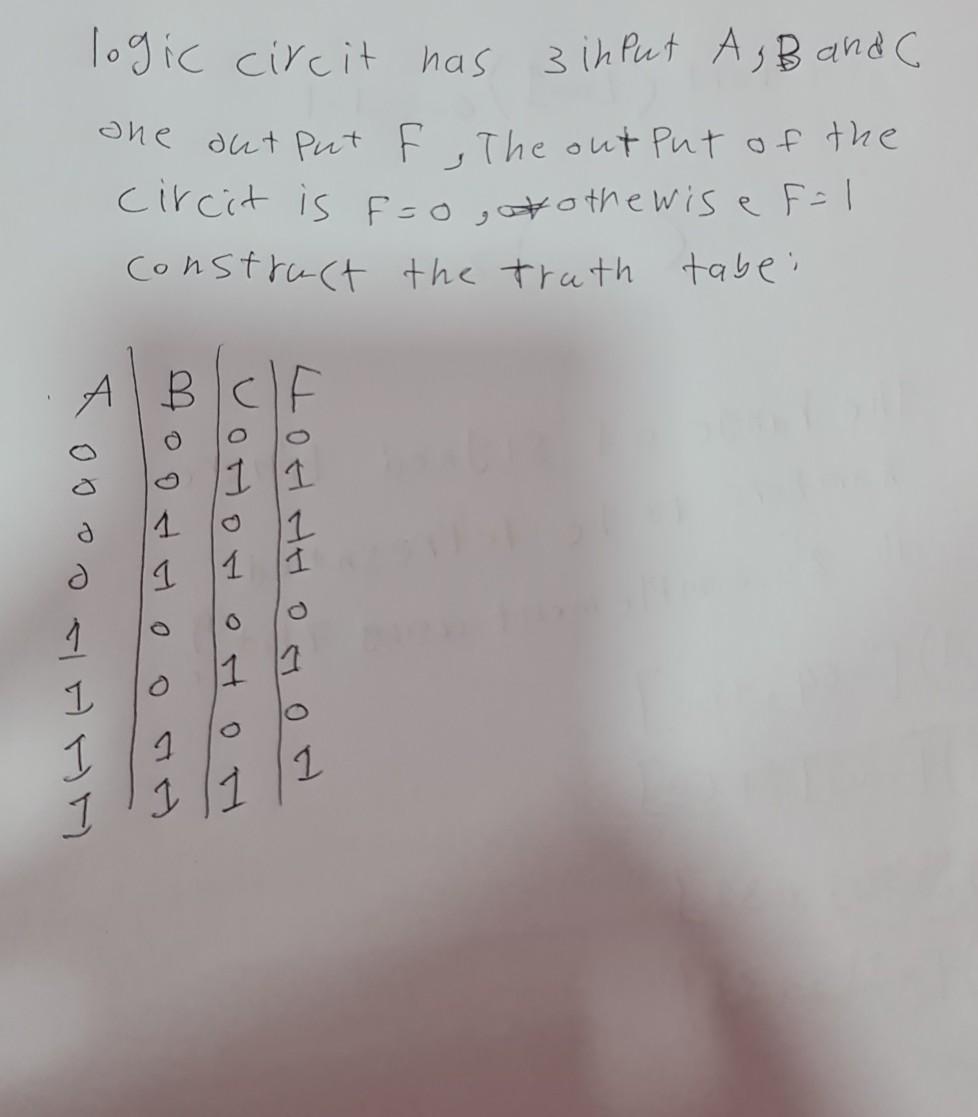 logic circit has 3 input A, B and C
one out put F, The out put of the
circit is F=0, othewise F=1
construct the truth tabe:
A B C F
0 0 0 0
0 0 1 1
0 1 0 1
0 1 1 1
1 0 0 0
1 0 1 1
1 1 0 0
1 1 1 1